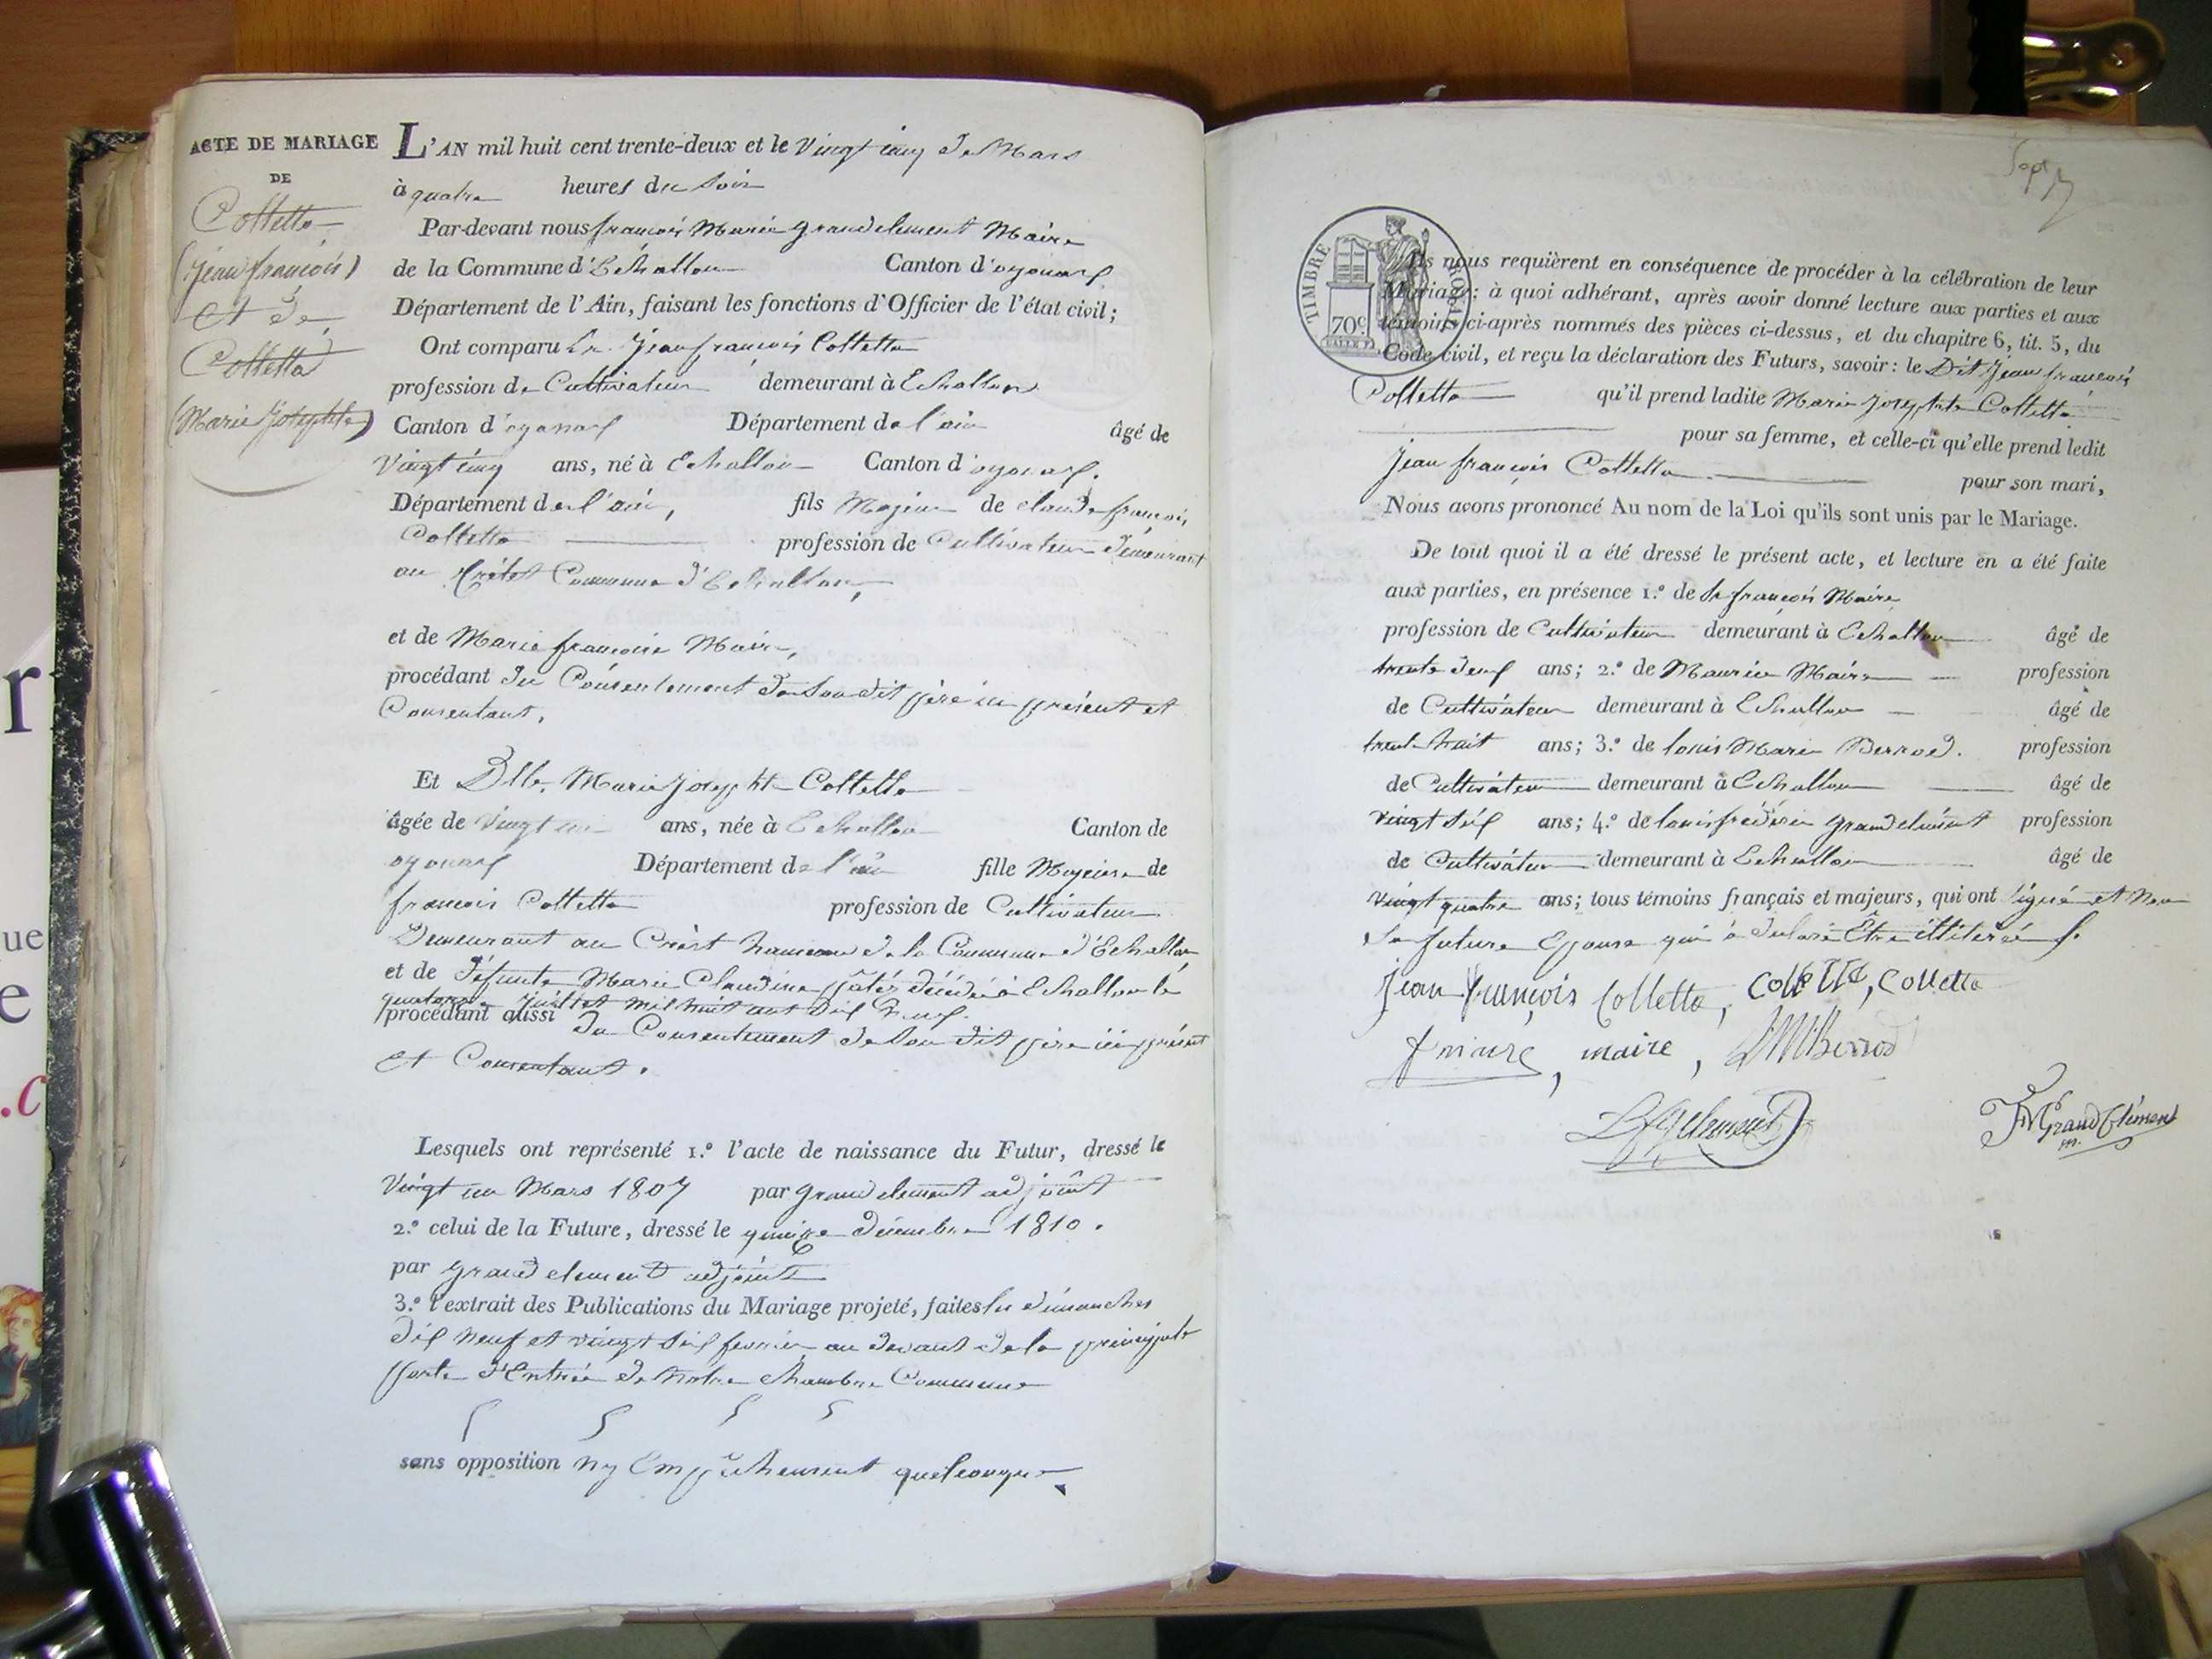 ACTE DE MARIAGE
DE
Colletta
(Jean françois)
et de
Colletta
(Marie Josephte)
L'AN mil huit cent trente-deux et le vingt cinq de Mars
à quatre heures du soir
Par-devant nous françois Marie grandclement Maire
de la Commune d'Echallon Canton d'oyonax
Département de l'Ain, faisant les fonctions d'Officier de l'état civil;
Ont comparu Sr. Jean françois Colletta
profession de Cultivateur demeurant à Echallon
Canton d'oyonax Département de l'ain âgé de
vingt cinq ans, né à Echallon Canton d'oyonax.
Département de l'ain, fils Majeur de claude françois
Colletta profession de Cultivateur demeurant
au Crétet Commune d'Echallon,
et de Marie françoise Maire,
procédant du Consentement de son dit père ici présent et
Consentant.
Et Dlle. Marie Josephte Colletta
âgée de vingt un ans, née à Echallon Canton de
oyonax Département de l'ain fille Majeure de
françois Colletta profession de Cultivateur
Demeurant au Crèst hameau de la Commune d'Echallon
et de défunte Marie Claudine décédée à Echallon le
quatorze Juillet mil huit cent dix neuf.
procédant aussi du Consentement de son dit père ici présent
et Consentant.
Lesquels ont représenté 1.º l'acte de naissance du Futur, dressé le
vingt un Mars 1807 par grandclement adjoint
2.º celui de la Future, dressé le quinze décembre 1810.
par grandclement adjoint
3.º l'extrait des Publications du Mariage projeté, faites les dimanches
dix neuf et vingt six fevrier au devant de la principale
porte d'Entrée de Notre chambre Commune
sans opposition ny Empêchement quelconque
Sept
7
TIMBRE ROYAL
70c
Ils nous requièrent en conséquence de procéder à la célébration de leur
Mariage: à quoi adhérant, après avoir donné lecture aux parties et aux
témoins ci-après nommés des pièces ci-dessus, et du chapitre 6, tit. 5, du
Code civil, et reçu la déclaration des Futurs, savoir: le Dit Jean françois
Colletta qu'il prend ladite Marie Josephte Colletta
pour sa femme, et celle-ci qu'elle prend ledit
Jean françois Colletta pour son mari,
Nous avons prononcé Au nom de la Loi qu'ils sont unis par le Mariage.
De tout quoi il a été dressé le présent acte, et lecture en a été faite
aux parties, en présence 1.º de Sr françois Maire
profession de Cultivateur demeurant à Echallon âgé de
trente deux ans; 2.º de Maurice Maire profession
de Cultivateur demeurant à Echallon âgé de
trent huit ans; 3.º de louis Marie Berrod. profession
de Cultivateur demeurant à Echallon âgé de
vingt six ans; 4.º de louis fréderic grandclément profession
de Cultivateur demeurant à Echallon âgé de
vingt quatre ans; tous témoins français et majeurs, qui ont signé et Non
la future Epouse qui à déclaré Être illiterée
jean françois Colletta, Collette, Colletta
f maire, maire, LMBerrod
Lfgclement
FMGrandClément
m.